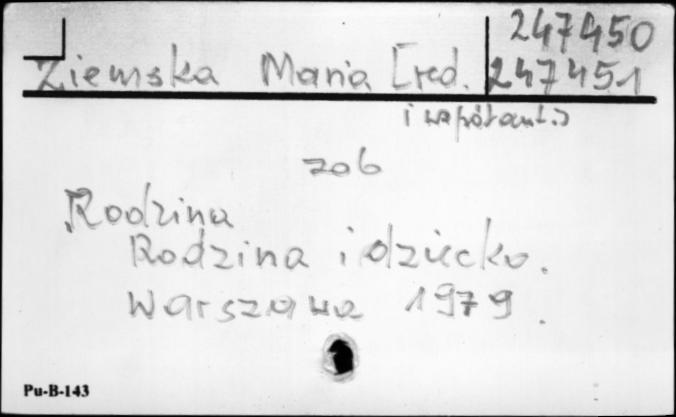 247450
Ziemska Maria [red. 247451
i współaut.]
zob
Rodzina
Rodzina i dziecko.
Warszawa 1979.
Pu-B-143